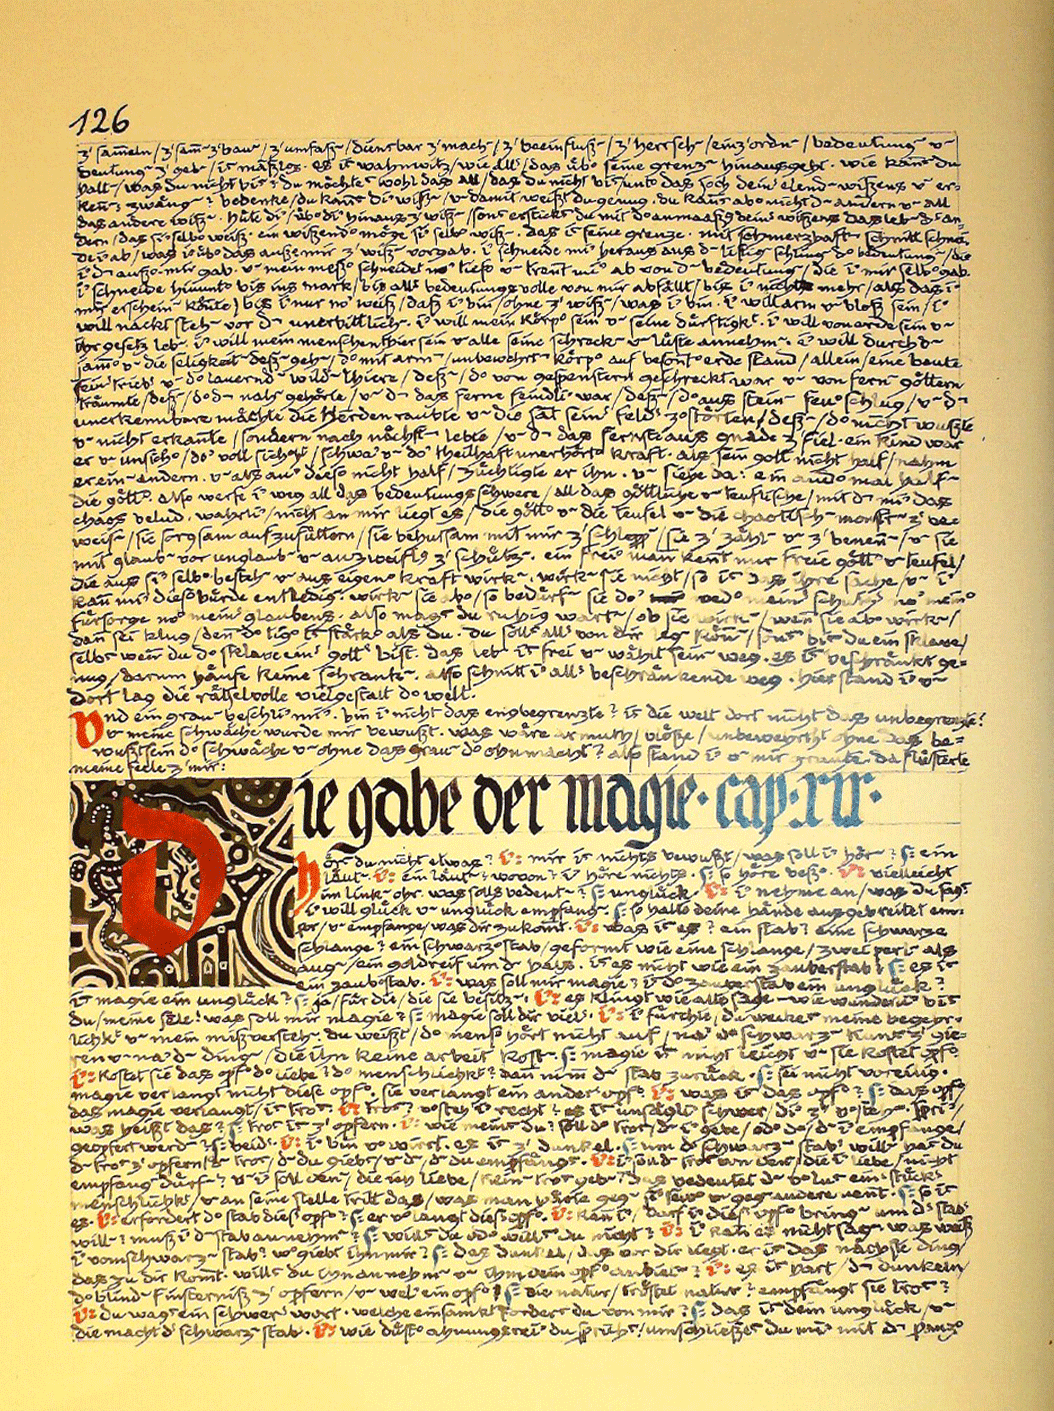 126
z' sam̄eln / z' / z' umfass- / z' mach- / z' beeinfluß- / z' herrsch- / einz'ordn- / bedeutung- v-
z' geb- / ist maßlos. es ist wahnwitz / wie all' / das üb' seine grenz- hinausgeht. wie kañst du
halt- / was du nicht bist? du möchtest wohl das all / das du nicht bist unt' das joch dein' elend- wissens v- er-
zwäng-? bedenke / du kañst di' wiss- / v- damit weißt du genug. du kañst ab' nicht d- ander- v- all
das andere wiss-. hüte di' / üb' di' hinaus z' wiss- / sonst erstickst du mit d' anmaaßg dein' wissens das leb- d' an-
dern / das si' selb' weiß. ein wissend' möge si' selb' wiss-. das ist seine grenze. mit schmerzhaft- schnitt schneid
ab / was i' üb' das auß' mir z' wiss- vorgab. i' schneide mi' heraus aus d- listig- schling- d' bedeutung- / die
i' d- auß' mir gab. v- mein mess' schneidet no' tief' v- treñt mi' ab von d- bedeutung- / die i' mir selb' gab.
i' schneide hinunt' bis ins mark / bis all' bedeutungsvolle von mir abfällt / bis i' nicht mehr / als das i'
mir erschein- köñte / bis i' nur no' weiß / daß i' bin / ohne z' wiss- / was i' bin. i' will arm v- bloß sein / i'
will nackt steh- vor d- unerbittlich-. i' will mein körp' sein v- seine dürftigkt. i' will von erde sein v-
ihr gesetz leb-. i' will mein menschenthier sein v- alle seine schreck- v- lüste annehm-. i' will durch d-
jam̄' v- die seligkeit deß- geh- / d' mit arm- / unbewehrt- körp' auf besoñt' erde stand / allein / eine beute
sein' trieb' v- d' lauernd- wild- thiere / deß- / d' von gespenstern geschreckt war v- von fern- göttern
träumte / deß- / d' d- nah- gehörte / v- d- das ferne feindli' war / deß- / d' aus stein- feu' schlug / v- d-
unerkeñbare mächte die herden raubte v- die saat sein' feld' z'störten / deß- / d' nicht wußte
v- nicht erkañte / sondern nach nächst- lebte / v- d- das fernste aus gnade z' fiel. ein kind war
er v- unsich' / do' voll sicherht / schwa' v- do' theilhaft unerhört' kraft. als sein gott nicht half / nahm
er ein- andern. v- als au' dieser nicht half / züchtigte er ihn. v- siehe da: ein ander mal half-
die gött'. also werfe i' weg all das bedeutungsschwere / all das göttliche v- teuflische / mit d- mi' das
chaos belud. wahrli' / nicht an mir liegt es / die gött' v- die teufel v- die chaotisch- monstr- z' be-
weis- / sie sorgsam aufzufüttern / sie behutsam mit mir z' schlepp- / sie z' zähl- v- z' beneñ- / v- sie
mit glaub- vor unglaub- v- anzweiflg z' schütz-. ein frei' mañ keñt nur freie gött' v- teufel /
die aus si' selb' besteh- v- aus eigen' kraft wirk-. wirk- sie nicht / so ist das ihre sache / v- i'
kañ mi' dies' bürde entledig-. wirk- sie ab' / so bedürf- sie do' wed' mein' schutz' no' mein'
fürsorge no' mein' glaubens. also magst du ruhig wart- / ob sie wirk- / weñ sie ab' wirk- /
dañ sei klug / deñ d' tig' ist stärk' als du. du sollst all' von dir leg- köñ- / sonst bist du ein sklave /
selbst weñ du d' sklave ein' gott' bist. das leb- ist frei v- wählt sein- weg. es ist beschränkt ge-
nug / darum häufe keine schrank-. also schnitt i' all' beschränkende weg. hier stand i' v-
dort lag die rätselvolle vielgestalt d' welt.
Und ein grau- beschli' mi'. bin i' nicht das engbegrenzte? ist die welt dort nicht das unbegrenzte?
v- meine schwäche wurde mir bewußt. was wäre armuth / blöße / unbewehrtht ohne das be-
wußtsein d' schwäche v- ohne das grau- d' ohnmacht? also stand i' v- mir graute. da flüsterte
meine seele z' mir:
Die gabe der magie. cap. xix.
Hörst du nicht etwas? I: mir ist nichts bewußt / was soll i' hör-? S: ein
läut-. I: ein läut-? wovon? i' höre nichts. S: so höre bess'. I: vielleicht
im link- ohr. was solls bedeut-? S: unglück. I: i' nehme an / was du sagst.
i' will glück v- unglück empfang-. S: so halte deine hände ausgebreitet em-
por / v- empfange / was dir zukom̄t. I: was ist es? ein stab? eine schwarze
schlange? ein schwarz' stab / geformt wie eine schlange / zwei perl- als
aug- / ein goldreif um d- hals. ist es nicht wie ein zauberstab? S: es ist
ein zaub'stab. I: was soll mir magie? ist d' zauberstab ein unglück?
ist magie ein unglück? S: ja / für die / die sie besitz-. I: es klingt wie alte sage- wie wunderli' bist
du / meine seele! was soll mir magie? S: magie soll dir viel. I: i' fürchte / du weckst meine begehr-
lichkt v- mein mißversteh-. du weißt / d' mensch hört nicht auf / na' d' schwarz- kunst z' gie-
ren v- na' d- ding- / die ihn keine arbeit kost-. S: magie ist nicht leicht v- sie kostet opf'.
I: kostet sie das opf' d' liebe? d' menschlichkt? dañ nim̄ d- stab zurück. S: sei nicht voreilig.
magie verlangt nicht diese opf'. sie verlangt ein ander' opf'. I: was ist das opf'? S: das opf' /
das magie verlangt / ist trost. I: trost? versteh i' recht? es ist unsägli' schwer / di' z' versteh-. spri' /
was heißt das? S: trost ist z' opfern. I: wie meinst du? soll d' trost / d- i' gebe / od' d' / d- i' empfange /
geopfert werd-? S: beid'. I: i' bin verwirrt. es ist z' dunkel. S: um d' schwarz- stab' willen hast du
d- trost z' opfern / d- trost / d- du giebst / v- d- / d- du empfängst. I: i' soll d- trost von den- / die i' liebe / nicht
empfang- dürf-? v- i' soll den- / die ich liebe / kein- trost geb-? das bedeutet d- verlust ein' stück'
menschlichkt / v- an seine stelle tritt das / was man härte geg- si' selb' v- geg- andere neñt. S: so ist
es. I: erfordert d' stab dies' opf'? S: er verlangt dies' opf'. I: kañ i' / darf i' dies' opf' bring- um d' stab'
will-? muß i' d- stab annehm-? S: willst du od' willst du nicht? I: i' kañ es nicht sag-. was weiß
i' vom schwarz- stab? wer giebt ihn mir? S: das dunkel / das vor dir liegt. er ist das nächste ding /
das zu dir kom̄t. willst du ihn annehm- v- ihm dein opf' anbiet-? I: es ist hart / d- dunkeln /
d' blind- finsterniß z' opfern / v- welch ein opf'! S: die natur / tröstet natur? empfängt sie trost?
I: du wagst ein schwer' wort. welche einsamkt forderst du von mir? S: das ist dein unglück / v-
die macht d' schwarz- stab'. I: wie düst' v- ahnungsrei' du sprichst! umschließest du mi' mit d- panz'